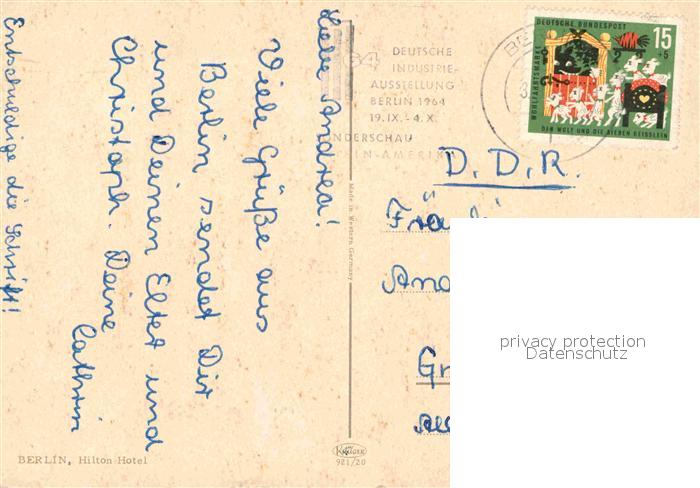 Liebe Andrea!
Viele Grüße aus
Berlin sendet Dir
und Deinen Eltern und
Christoph. Deine
Cathrin
Entschuldige die Schrift!
DEUTSCHE
INDUSTRIE-
AUSSTELLUNG
BERLIN 1964
19.IX.- 4.X.
SONDERSCHAU
DEUTSCHE BUNDESPOST
15
+5
WOHLFAHRTSMARKE
DER WOLF UND DIE SIEBEN GEISSLEIN
D.D.R.
Made in Western Germany
privacy protection
Datenschutz
BERLIN, Hilton Hotel
KRÜGER
921/20